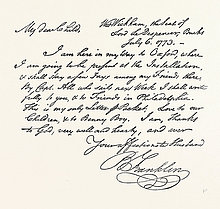 My dear Child, Wt Wickham, the Seat of
Lord le Despencer, Bucks
July 6. 1773. -
I am here in my way to Oxford, where
I am going to be present at the Installation,
& shall stay a few Days among my Friends there.
By Capt. All who sails next Week I shall write
fully to you, & to Friends in Philadelphia.
This is my only Letter Packet. Love to our
Children, & to Benny Boy. I am, Thanks
to God, very well and hearty, and ever
Your affectionate Husband
B Franklin